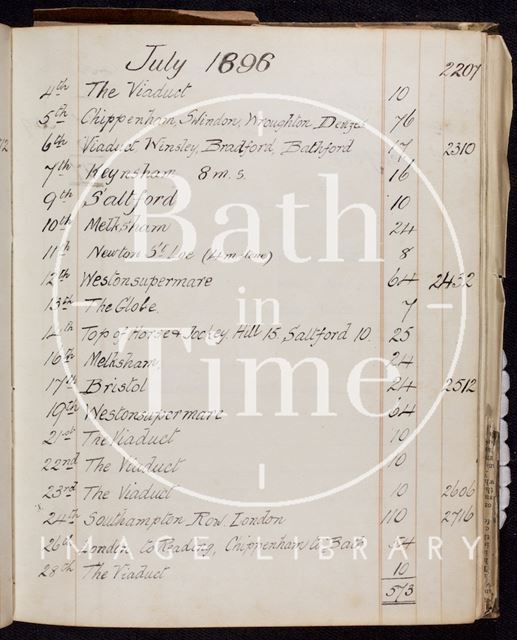 July 1896 2207
4th The Viaduct 10
5th Chippenham, Swindon, Wroughton Devizes 76
6th Viaduct Winsley, Bradford, Bathford 17 2310
7th Keynsham 8 m.s. 16
9th Saltford 10
10th Melksham 24
11th Newton St Loe (4 m. ) 8
12th Westonsupermare 64 2432
13th The Globe. 7
14th Top of Horse & Jockey Hill 15, Saltford 10. 25
16th Melksham, 24
17th Bristol 24 2512
19th Westonsupermare 64
21st The Viaduct 10
22nd The Viaduct 10
23rd The Viaduct 10 2606
24th Southampton Row London 110 2716
26th London to Reading, Chippenham to Bath 54
28th The Viaduct 10
573
Bath
in
Time
IMAGE LIBRARY